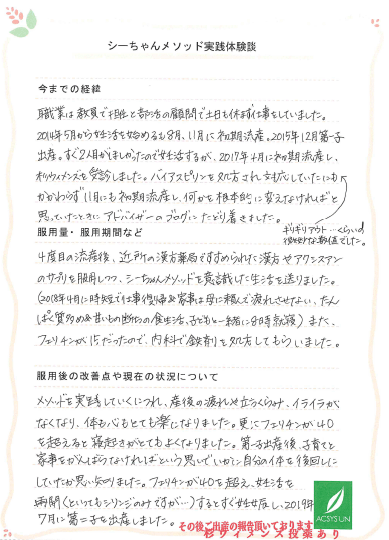 シーちゃんメソッド実践体験談
今までの経緯
職業は教員で担任と部活の顧問で土日も休まず仕事をしていました。
2014年5月から妊活を始めるも8月、11月に初期流産。2015年12月第一子
出産。すぐ2人目がほしかったので妊活するが、2017年4月に初期流産し、
杉ウィメンズを受診しました。バイアスピリンを処方され対応していたにも
かかわらず11月にも初期流産し、何かを根本的に変えなければと
思っていたときに アドバイザーのブログにたどり着きました。
ギリギリアウト…くらいの
数値でした。
服用量・服用期間など
4度目の流産後、近所の漢方薬局ですすめられた漢方やアクンアスン
のサプリを服用しつつ、シーちゃんメソッドを意識して生活を送りました。
(2018年4月に時短で仕事復帰&家事は母に頼んで疲れさせない、たん
ぱく質多め&甘いもの断ちの食生活、子どもと一緒に8時就寝) また、
フェリチンが15だったので、内科で鉄剤を処方してもらいました。
服用後の改善点や現在の状況について
メソッドを実践していくにつれ、産後の疲れや立ちくらみ、イライラが
なくなり、体も心もとても楽になりました。更にフェリチンが40
を超えると寝起きがとてもよくなりました。第一子出産後、子育てと
家事をがんばらなければという思いでいかに自分の体を後回しに
していたか思い知りました。フェリチンが40を超え、妊活を
再開(といってもシリンジのみですが…)するとすぐ妊娠し、2019年
7月に第二子を出産しました。
その後ご出産の報告頂いております
杉ウイメンズ投薬あり
ACSYSUN